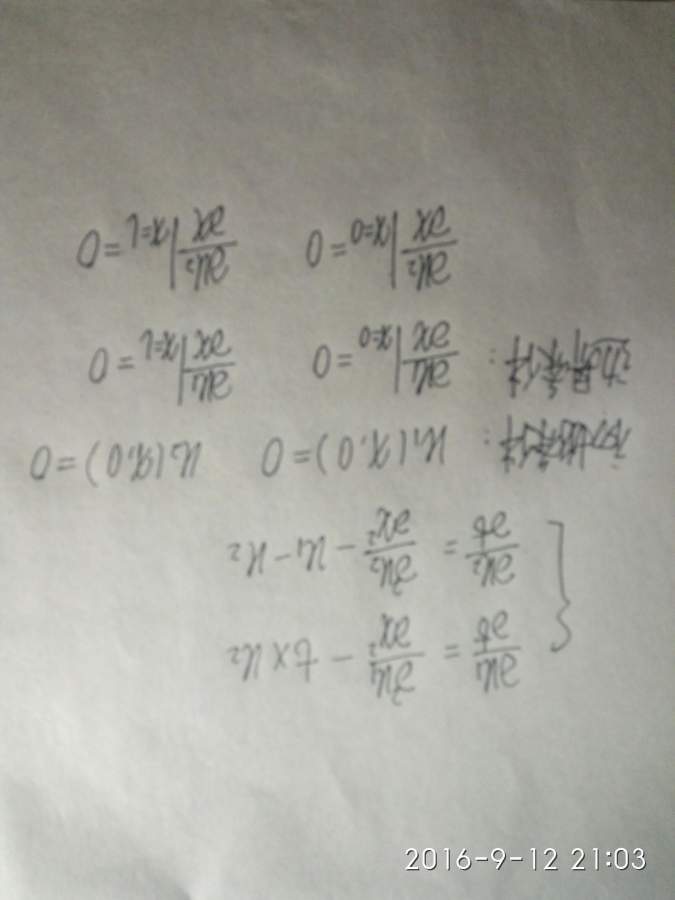 ∂u₁/∂t = ∂²u₁/∂x² − txu₂
∂u₂/∂t = ∂²u₂/∂x² − u₁ − u₂
初始条件: u₁(x,0)=0 u₂(x,0)=0
边界条件: ∂u₁/∂x|x=0 =0 ∂u₁/∂x|x=L =0
∂u₂/∂x|x=0 =0 ∂u₂/∂x|x=L =0
2016-9-12 21:03